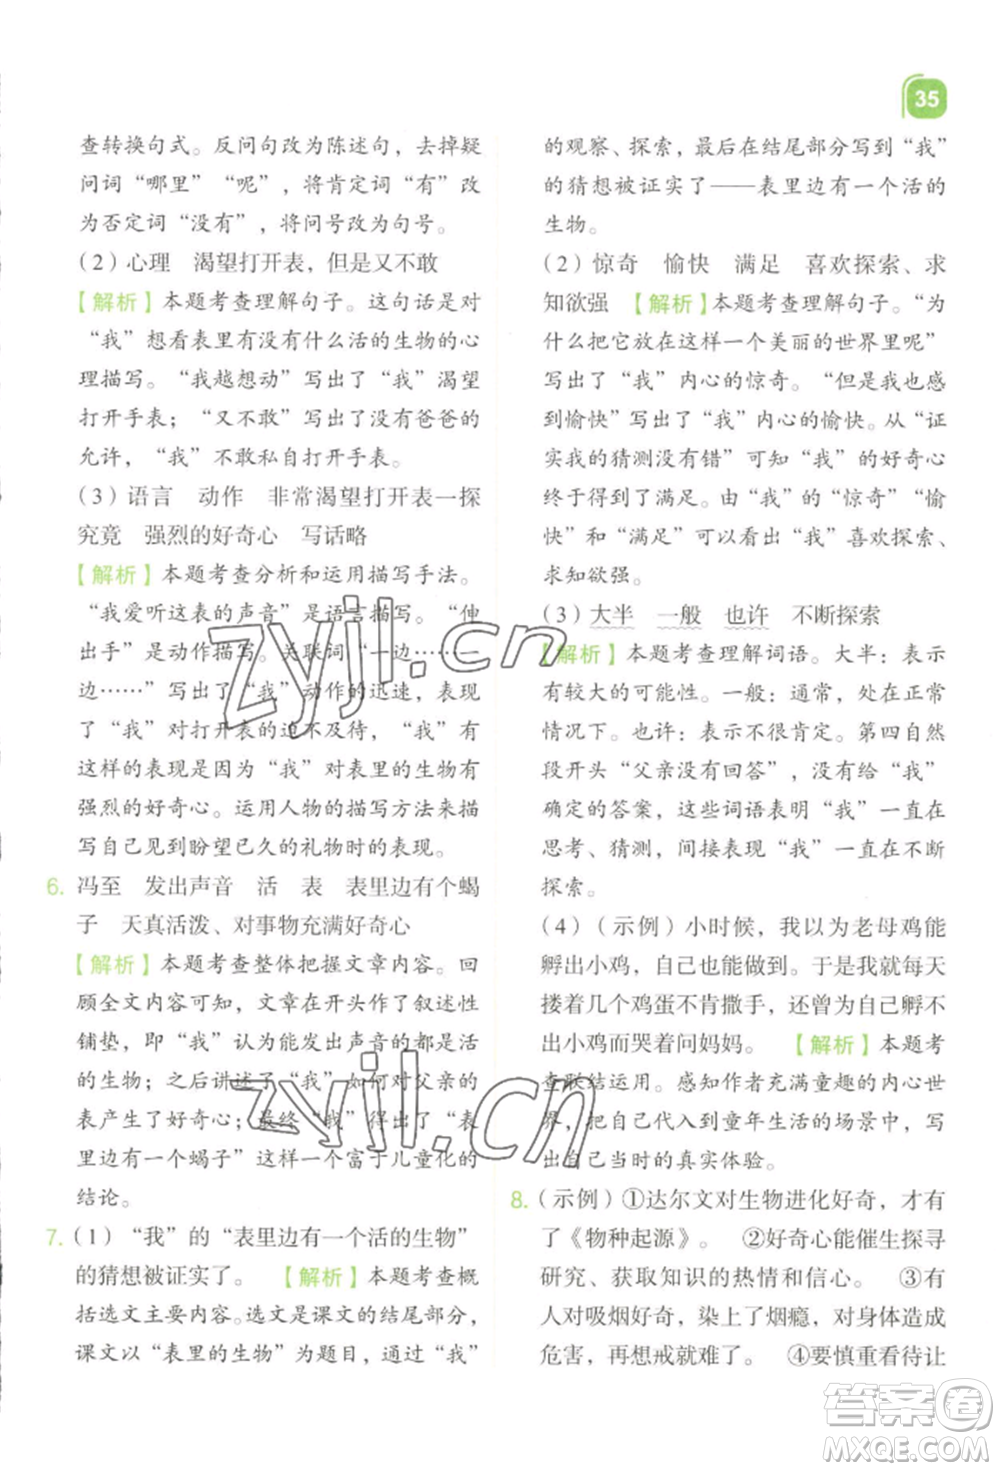 35
查转换句式。反问句改为陈述句，去掉疑
问词“哪里”“呢”，将肯定词“有”改
为否定词“没有”，将问号改为句号。
（2）心理　渴望打开表，但是又不敢
【解析】本题考查理解句子。这句话是对
“我”想看表里有没有什么活的生物的心
理描写。“我越想动”写出了“我”渴望
打开手表；“又不敢”写出了没有爸爸的
允许，“我”不敢私自打开手表。
（3）语言　动作　非常渴望打开表一探
究竟　强烈的好奇心　写话略
【解析】本题考查分析和运用描写手法。
“我爱听这表的声音”是语言描写。“伸
出手”是动作描写。关联词“一边……一
边……”写出了“我”动作的迅速，表现
了“我”对打开表的迫不及待，“我”有
这样的表现是因为“我”对表里的生物有
强烈的好奇心。运用人物的描写方法来描
写自己见到盼望已久的礼物时的表现。
6. 冯至　发出声音　活　表　表里边有个蝎
子　天真活泼、对事物充满好奇心
【解析】本题考查整体把握文章内容。回
顾全文内容可知，文章在开头作了叙述性
铺垫，即“我”认为能发出声音的都是活
的生物；之后讲述了“我”如何对父亲的
表产生了好奇心。最终“我”得出了“表
里边有一个蝎子”这样一个富于儿童化的
结论。
7.（1）“我”的“表里边有一个活的生物”
的猜想被证实了。　【解析】本题考查概
括选文主要内容。选文是课文的结尾部分，
课文以“表里的生物”为题目，通过“我”
的观察、探索，最后在结尾部分写到“我”
的猜想被证实了——表里边有一个活的
生物。
（2）惊奇　愉快　满足　喜欢探索、求
知欲强　【解析】本题考查理解句子。“为
什么把它放在这样一个美丽的世界里呢”
写出了“我”内心的惊奇。“但是我也感
到愉快”写出了“我”内心的愉快。从“证
实我的猜测没有错”可知“我”的好奇心
终于得到了满足。由“我”的“惊奇”“愉
快”和“满足”可以看出“我”喜欢探索、
求知欲强。
（3）大半　一般　也许　不断探索
【解析】本题考查理解词语。大半：表示
有较大的可能性。一般：通常，处在正常
情况下。也许：表示不很肯定。第四自然
段开头“父亲没有回答”，没有给“我”
确定的答案，这些词语表明“我”一直在
思考、猜测，间接表现“我”一直在不断
探索。
（4）（示例）小时候，我以为老母鸡能
孵出小鸡，自己也能做到。于是我每天
搂着几个鸡蛋不肯撒手，还曾为自己孵不
出小鸡而哭着问妈妈。　【解析】本题考
查联结运用。感知作者充满童趣的内心世
界，把自己代入到童年生活的场景中，写
出自己当时的真实体验。
8.（示例）①达尔文对生物进化好奇，才有
了《物种起源》。　②好奇心能催生探寻
研究、获取知识的热情和信心。　③有
人对吸烟好奇，染上了烟瘾，对身体造成
危害，再想戒就难了。　④要慎重看待让
zyjl.cn
zyjl.cn
答案圈
MXQE.COM